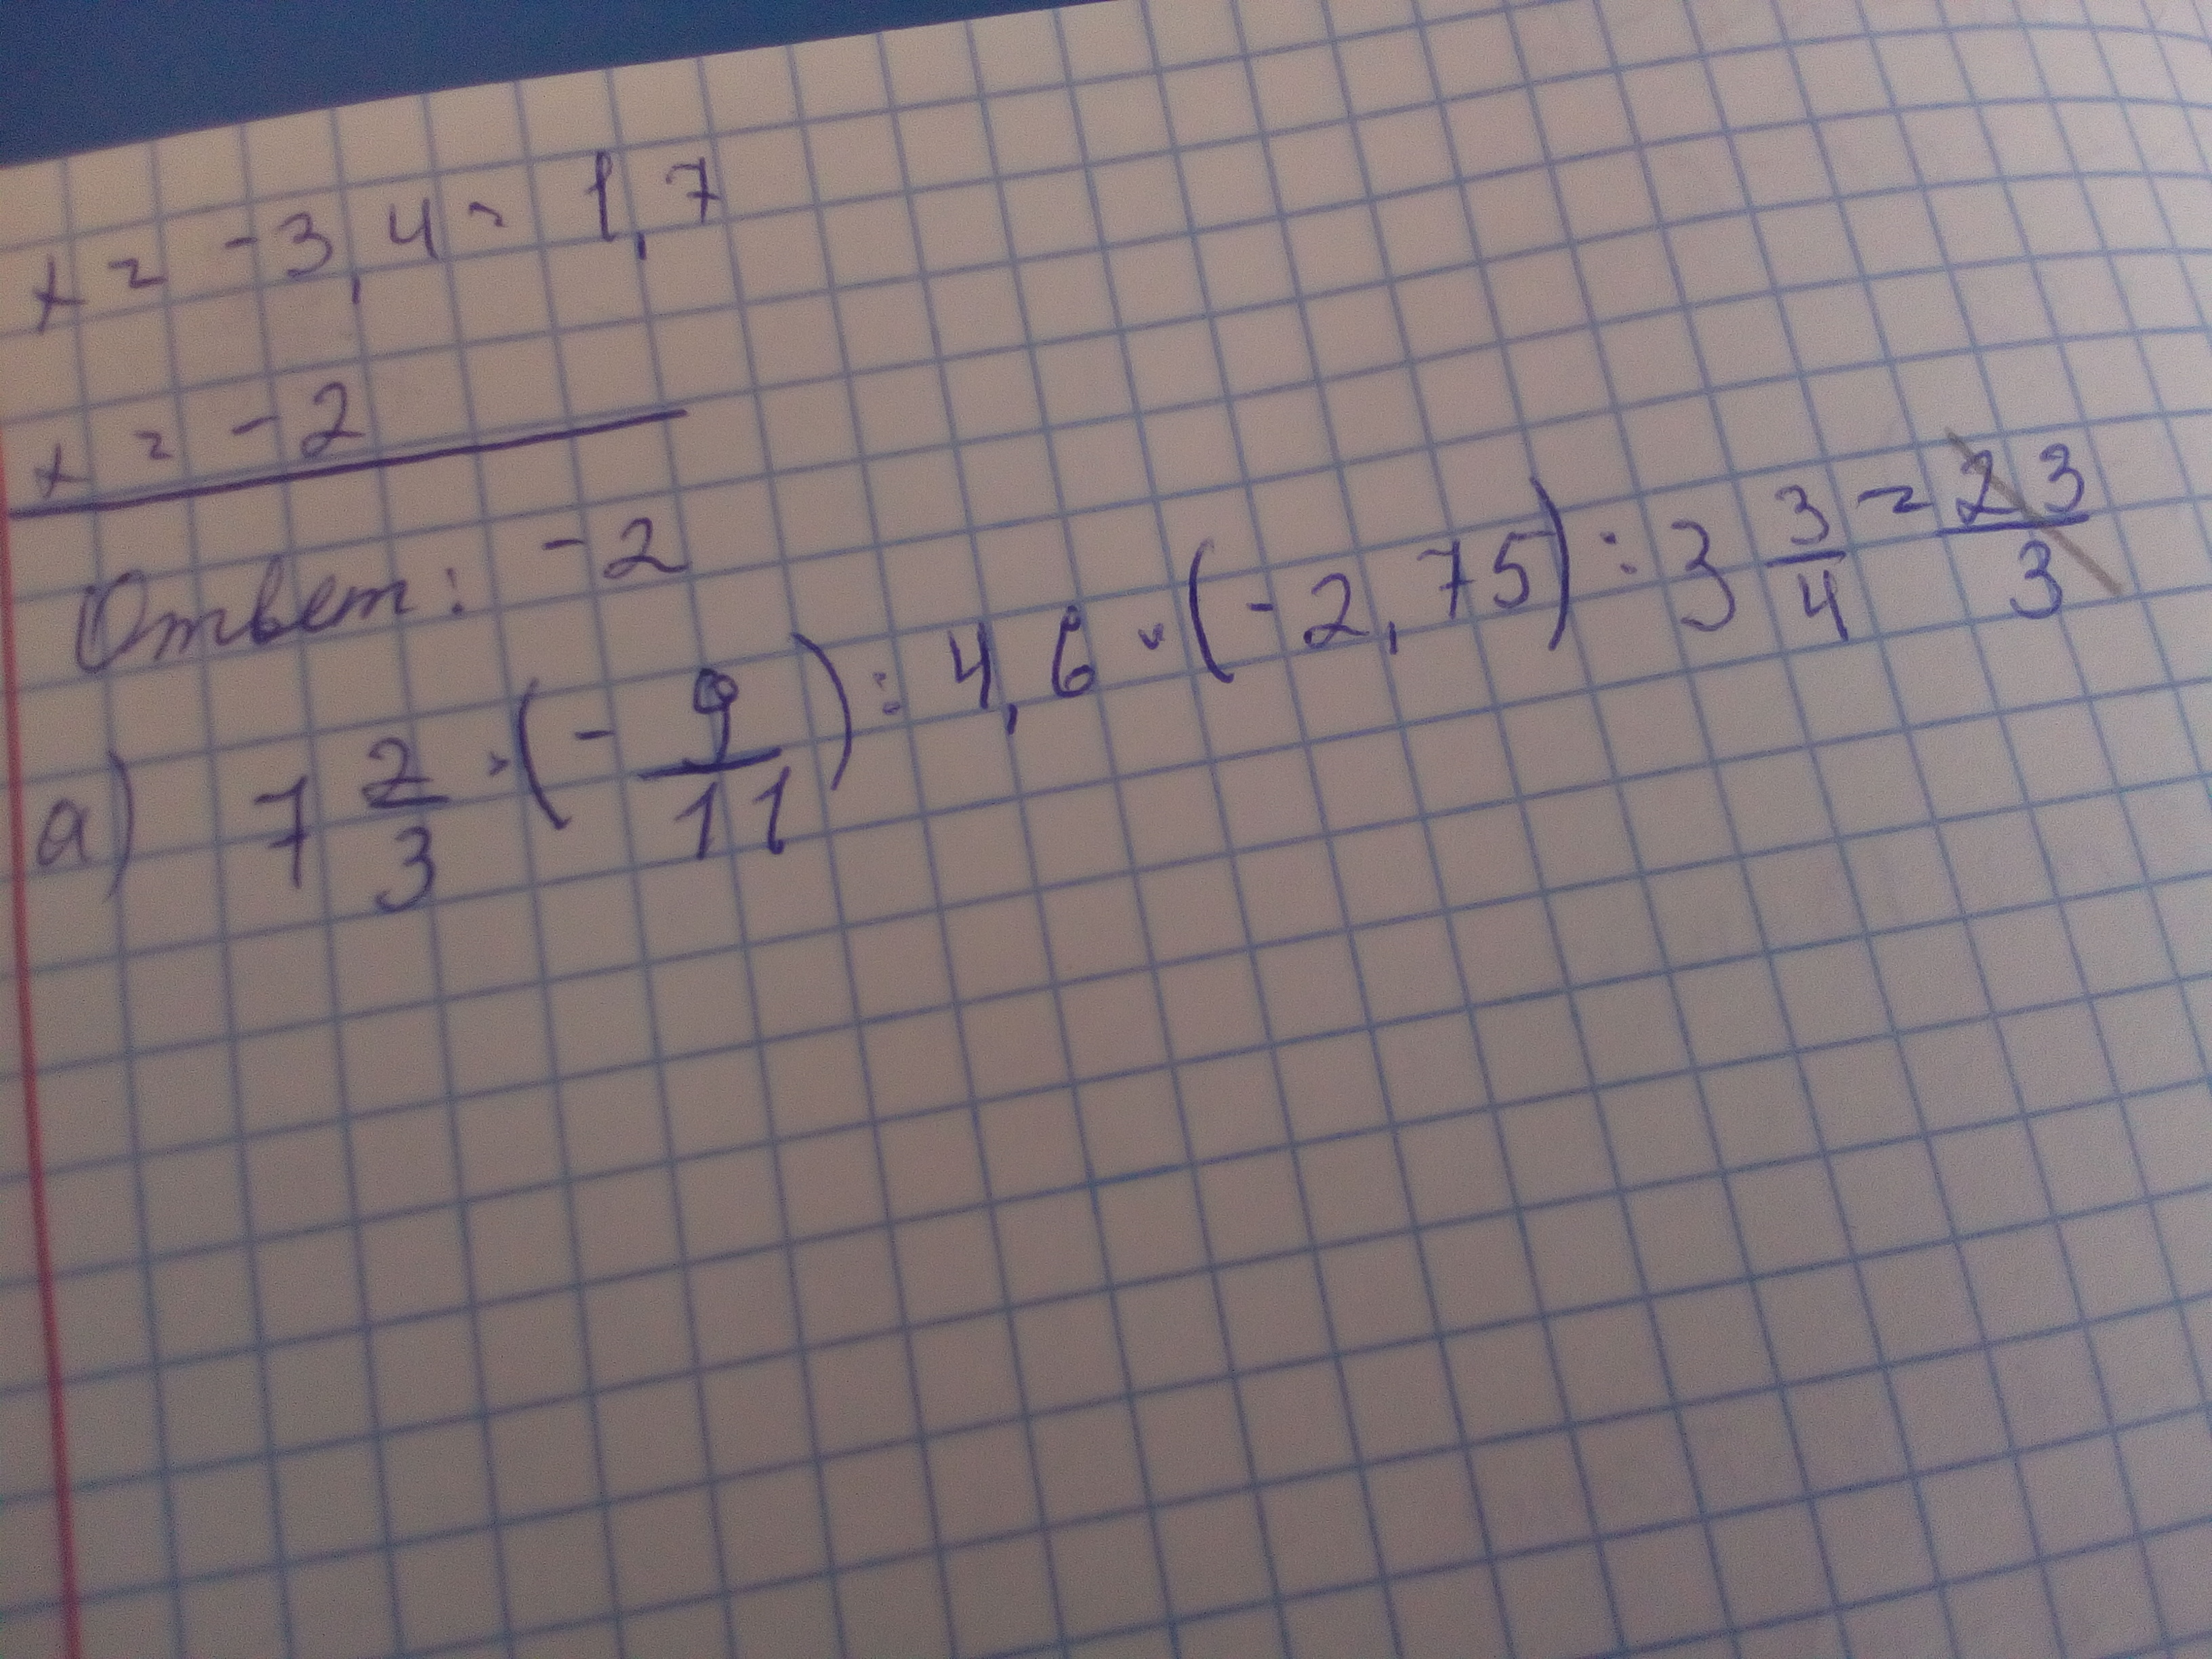 x = -3,4 : 1,7
x = -2
Ответ: -2
а) 7 2/3 · (- 9/11) : 4,6 · (-2,75) : 3 3/4 = 23/3